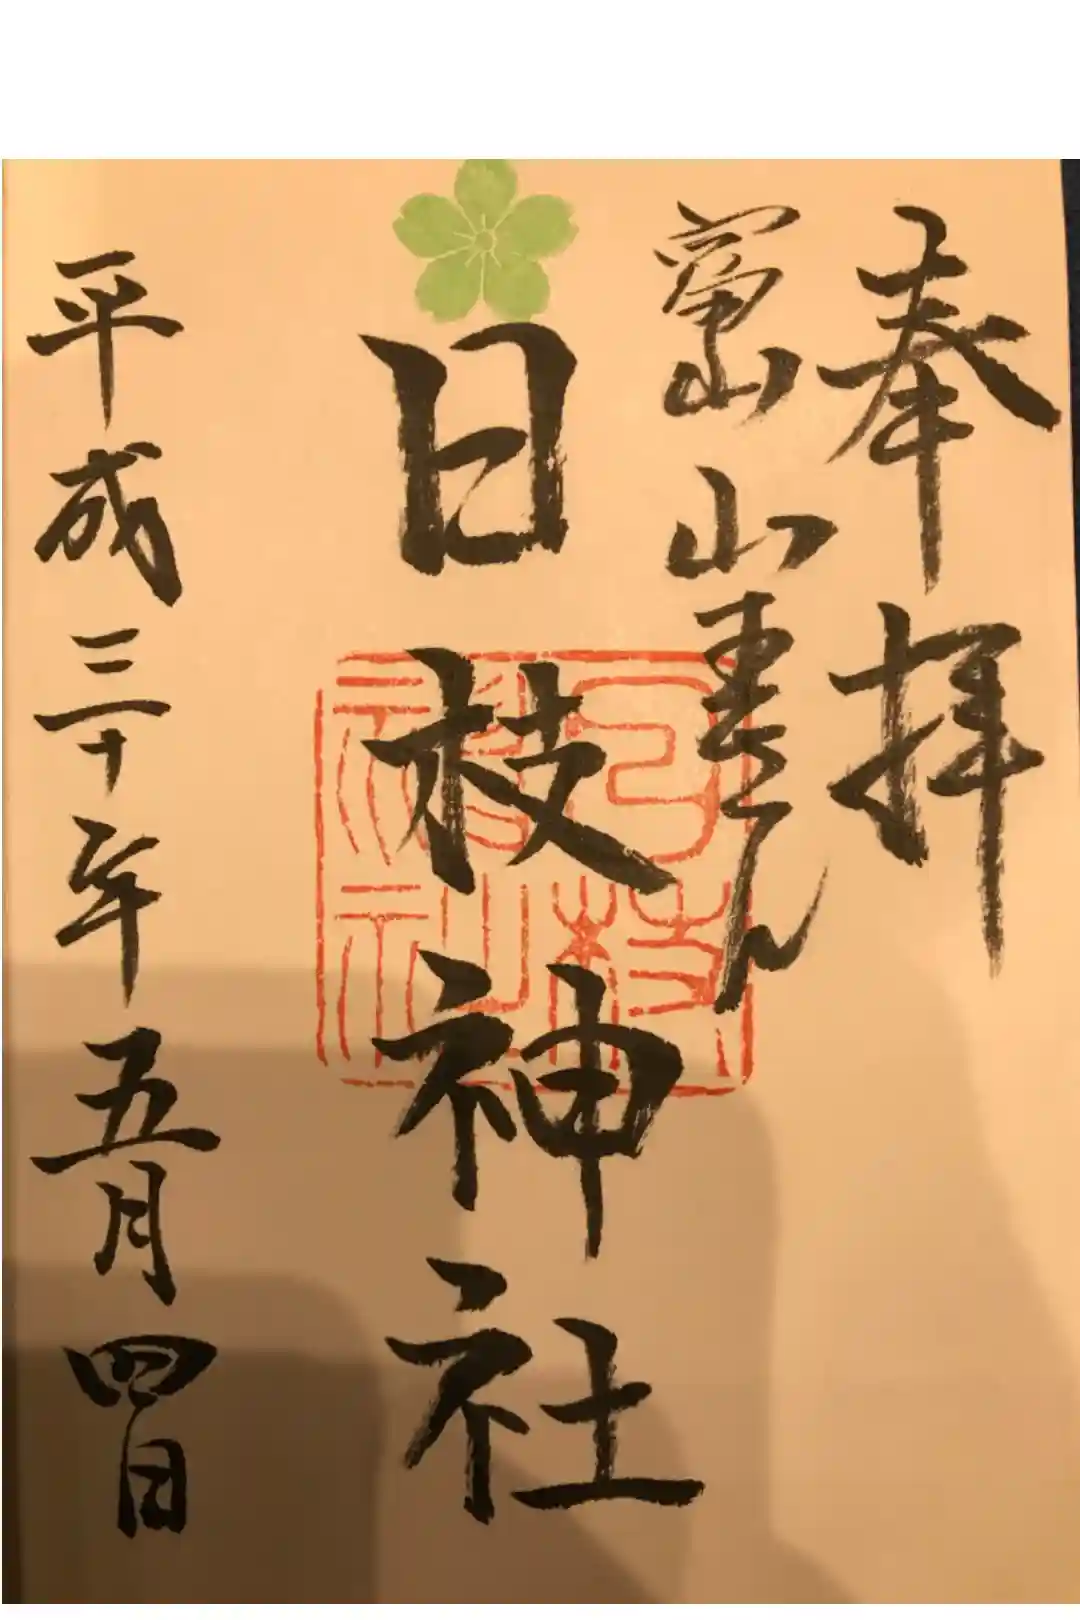 奉拝
富山山王さん
日枝神社
平成三十年五月四日
日枝
神社